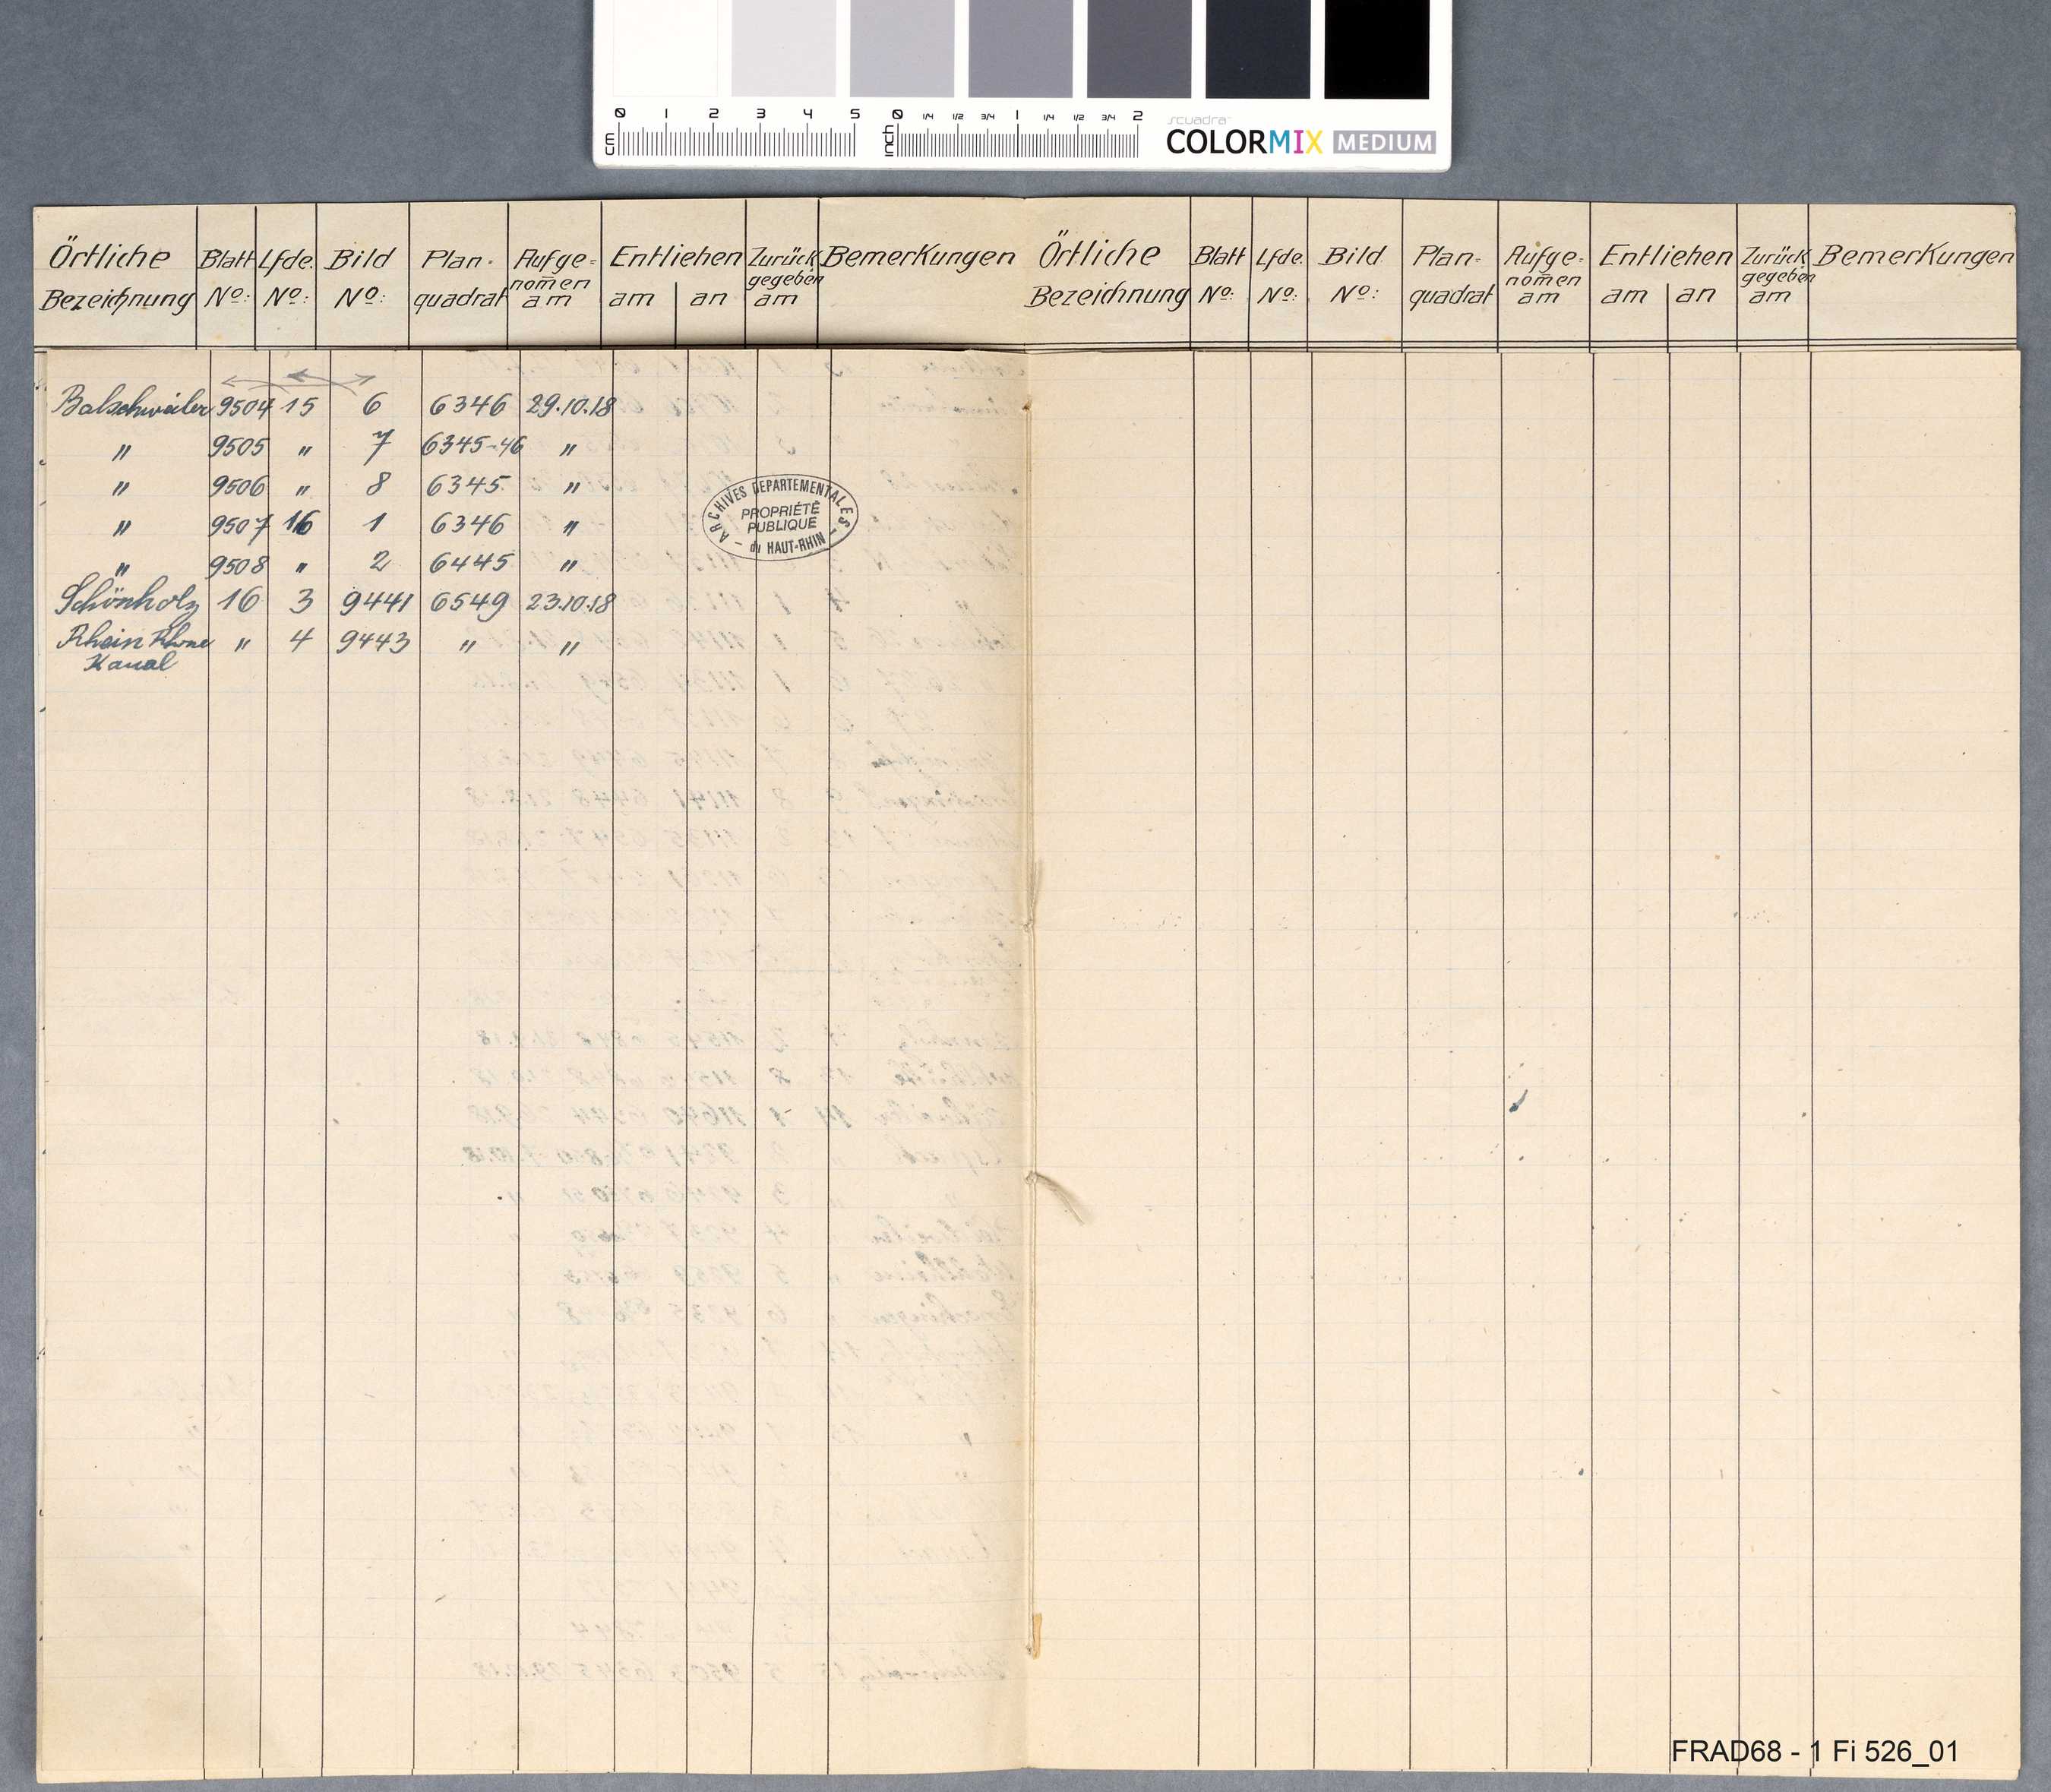 0 1 2 3 4 5 0 1/4 1/2 3/4 1 1/4 1/2 3/4 2
cm inch
scuadra
COLORMIX MEDIUM
Örtliche Bezeichnung Blatt No: Lfde. No: Bild No: Plan-quadrat Aufge-nomen am Entliehen am an Zurück gegeben am Bemerkungen
Örtliche Bezeichnung Blatt No: Lfde. No: Bild No: Plan-quadrat Aufge-nomen am Entliehen am an Zurück gegeben am Bemerkungen
Balschweiler 9504 15 6 6346 29.10.18
" 9505 " 7 6345-46 "
" 9506 " 8 6345 "
" 9507 16 1 6346 "
" 9508 " 2 6445 "
Schönholz 16 3 9441 6549 23.10.18
Rhein Rhone " 4 9443 " "
Kanal
ARCHIVES DEPARTEMENTALES
PROPRIÉTÉ
PUBLIQUE
du HAUT-RHIN
FRAD68 - 1 Fi 526_01